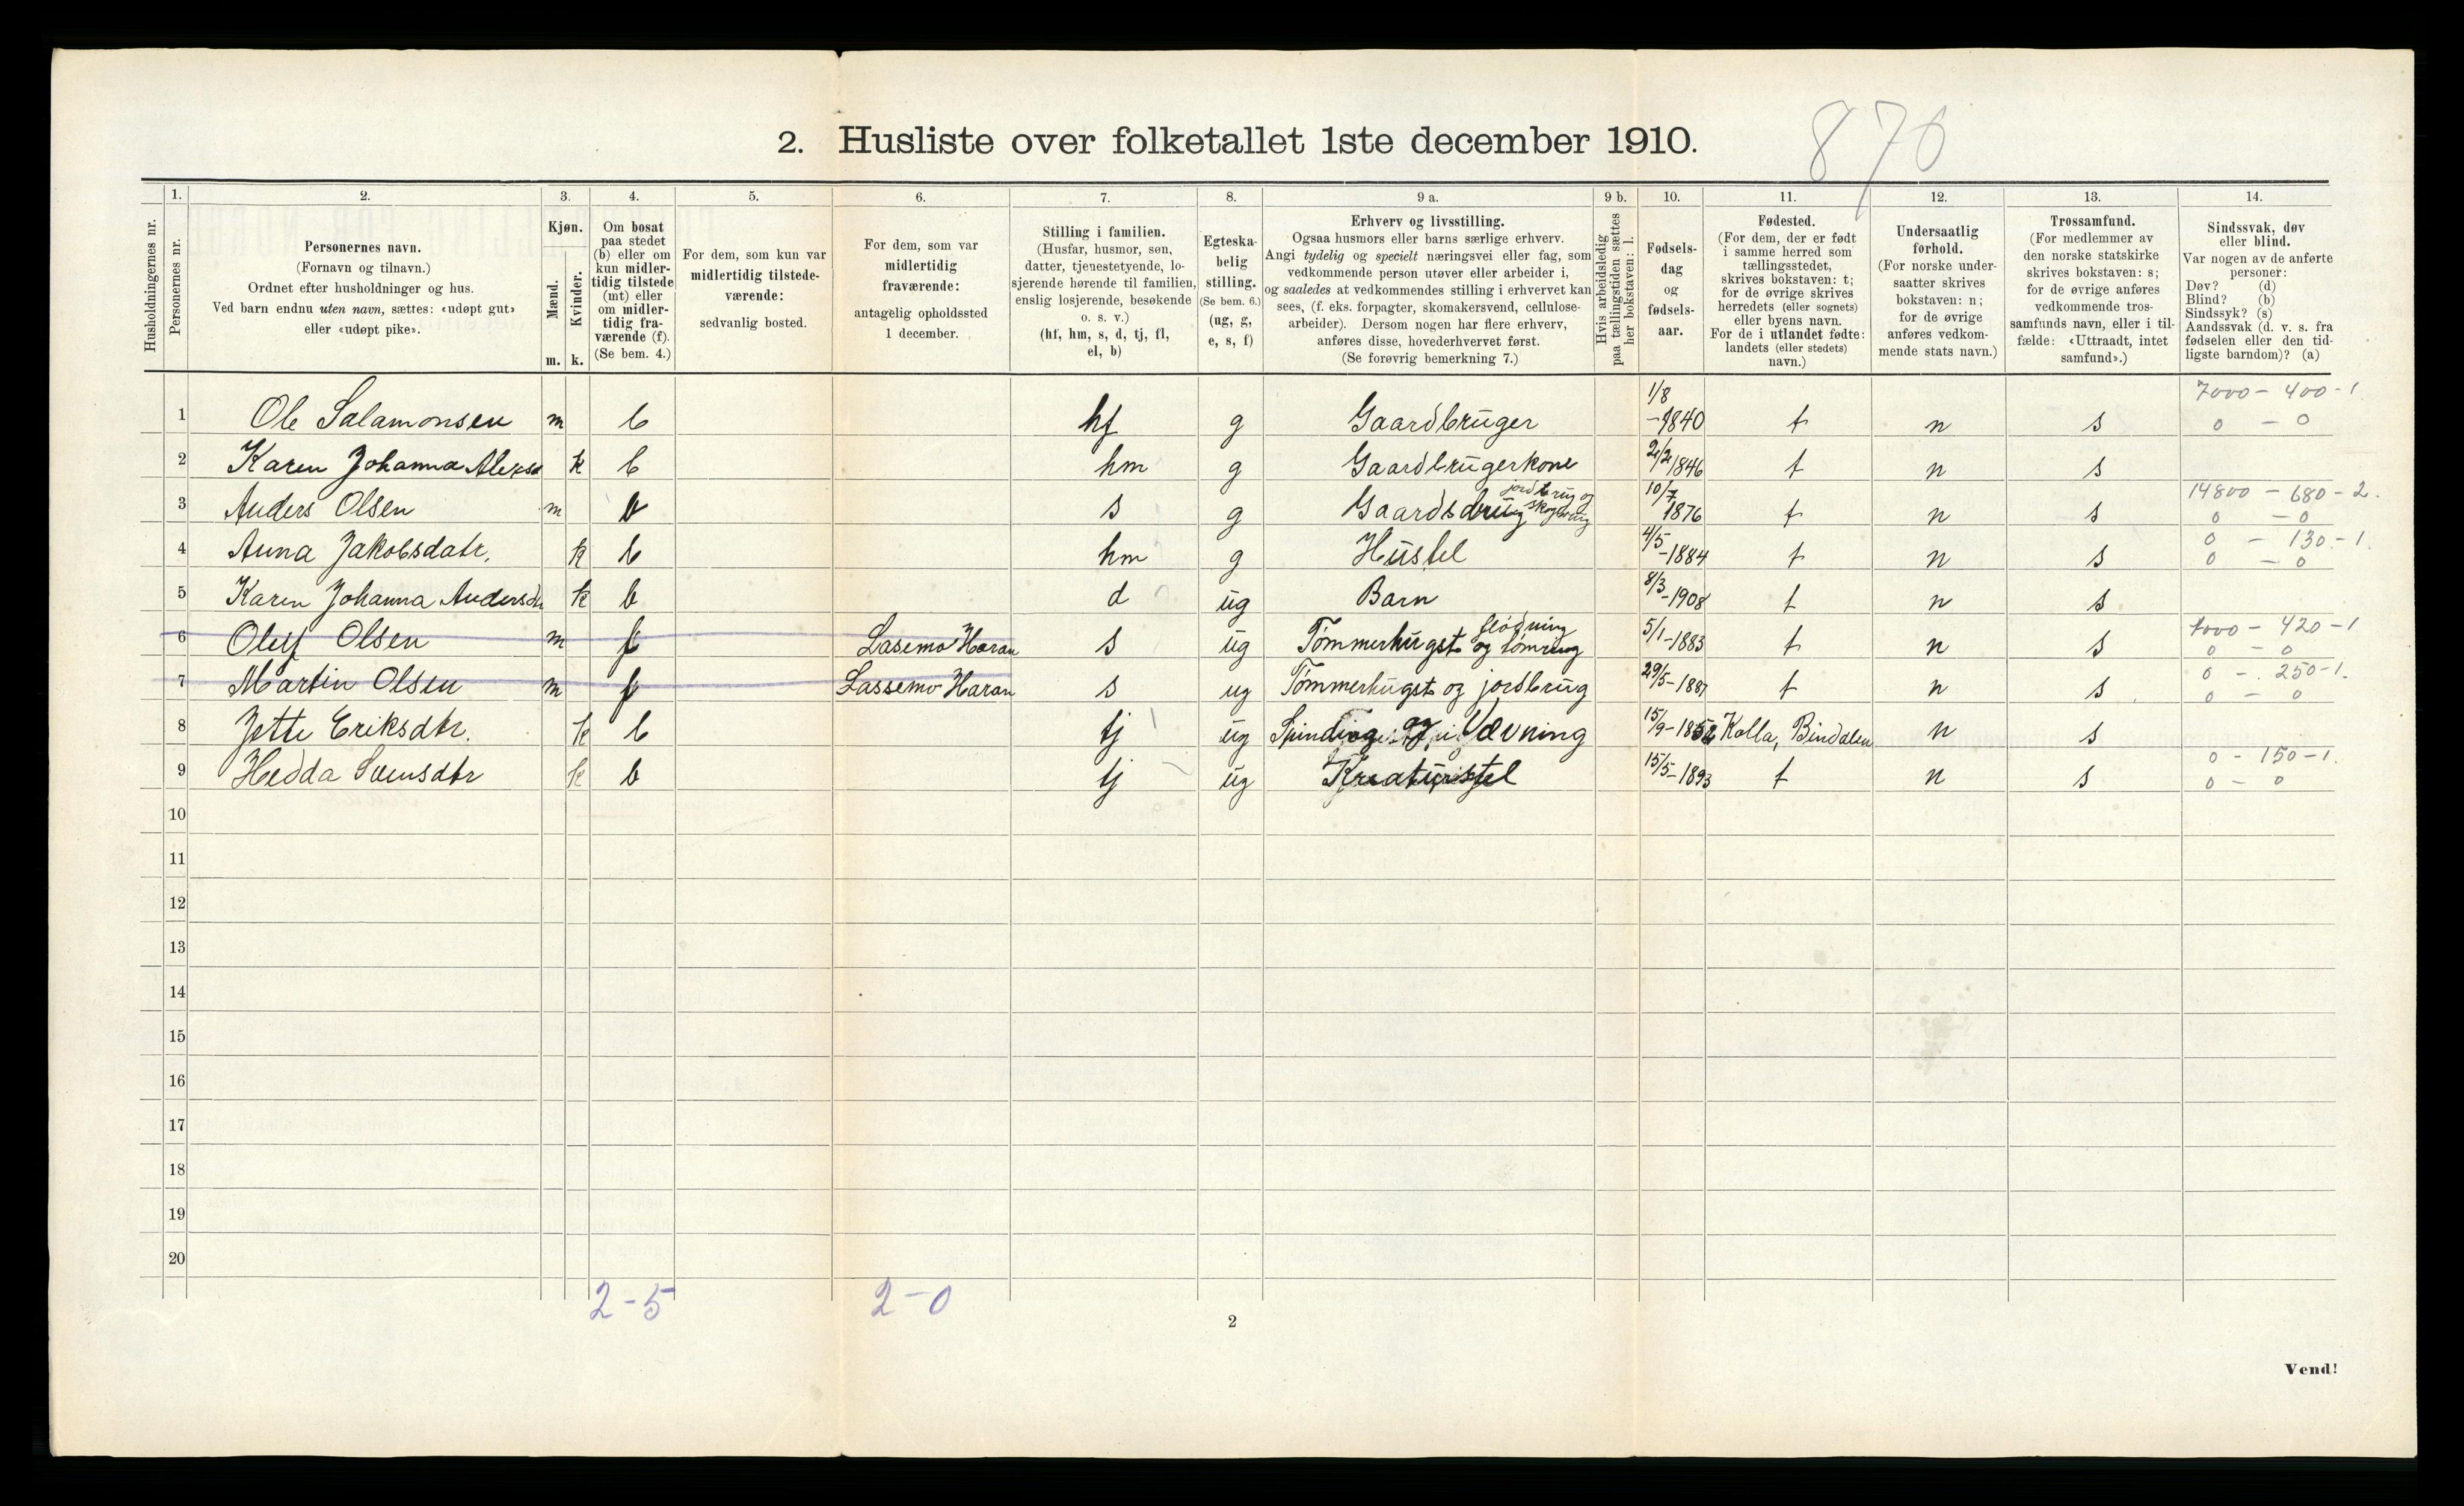 876
2. Husliste over folketallet 1ste december 1910.
Husholdningernes nr.
1.
Personernes nr.
2.
Personernes navn.
(Fornavn og tilnavn.)
Ordnet efter husholdninger og hus.
Ved barn endnu uten navn, sættes: «udøpt gut»
eller «udøpt pike».
3.
Kjøn.
Mænd.
Kvinder.
m. k.
4.
Om bosat
paa stedet
(b) eller om
kun midler-
tidig tilstede
(mt) eller
om midler-
tidig fra-
værende (f).
(Se bem. 4.)
5.
For dem, som kun var
midlertidig tilstede-
værende:
sedvanlig bosted.
6.
For dem, som var
midlertidig
fraværende:
antagelig opholdssted
1 december.
7.
Stilling i familien.
(Husfar, husmor, søn,
datter, tjenestetyende, lo-
sjerende hørende til familien,
enslig losjerende, besøkende
o. s. v.)
(hf, hm, s, d, tj, fl,
el, b)
8.
Egteska-
belig
stilling.
(Se bem. 6.)
(ug, g,
e, s, f)
9 a.
Erhverv og livsstilling.
Ogsaa husmors eller barns særlige erhverv.
Angi tydelig og specielt næringsvei eller fag, som
vedkommende person utøver eller arbeider i,
og saaledes at vedkommendes stilling i erhvervet kan
sees, (f. eks. forpagter, skomakersvend, cellulose-
arbeider). Dersom nogen har flere erhverv,
anføres disse, hovederhvervet først.
(Se forøvrig bemerkning 7.)
9 b.
Hvis arbeidsledig
paa tællingstiden sættes
her bokstaven: l.
10.
Fødsels-
dag
og
fødsels-
aar.
11.
Fødested.
(For dem, der er født
i samme herred som
tællingsstedet,
skrives bokstaven: t;
for de øvrige skrives
herredets (eller sognets)
eller byens navn.
For de i utlandet fødte:
landets (eller stedets)
navn.)
12.
Undersaatlig
forhold.
(For norske under-
saatter skrives
bokstaven: n;
for de øvrige
anføres vedkom-
mende stats navn.)
13.
Trossamfund.
(For medlemmer av
den norske statskirke
skrives bokstaven: s;
for de øvrige anføres
vedkommende tros-
samfunds navn, eller i til-
fælde: «Uttraadt, intet
samfund».)
14.
Sindssvak, døv
eller blind.
Var nogen av de anførte
personer:
Døv? (d)
Blind? (b)
Sindssyk? (s)
Aandssvak (d. v. s. fra
fødselen eller den tid-
ligste barndom)? (a)
7000 - 400 - 1
1 Ole Salamonsen m b hf g Gaardbruger 1/8 -1840 t n s 0 - 0
2 Karen Johanna k b hm g Gaardbrugerkone 2/2 1846 t n s
jordbrug og 14800 - 680 - 2.
3 Anders Olsen m b s g Gaardsbrug skogbrug 10/7 1876 t n s 0 - 0
0 - 130 - 1.
4 Anna Jakobsdatr. k b hm g Husstel 4/5 -1884 t n s 0 - 0
5 Karen Johanna Andersdtr k b d ug Barn 8/3 -1908 t n s
flødning 420 - 1
6 Oluf Olsen m f Lasemo Haran s ug Tømmerhugst og tømring 5/1 -1883 t n s 0 - 0
0 - 250 - 1.
7 Martin Olsen m f Lassemo Haran s ug Tømmerhugst og jordbrug 29/5 -1887 t n s 0 - 0
8 Jette Eriksdtr. k b tj ug Spinding og Vævning 15/9 Kolla, Bindalen n s
0 - 150 - 1.
9 Hedda Svensdtr k b tj ug Kreaturstel 15/5 -1893 t n s 0 - 0
10
11
12
13
14
15
16
17
18
19
20
2 - 5 2 - 0
2
Vend!